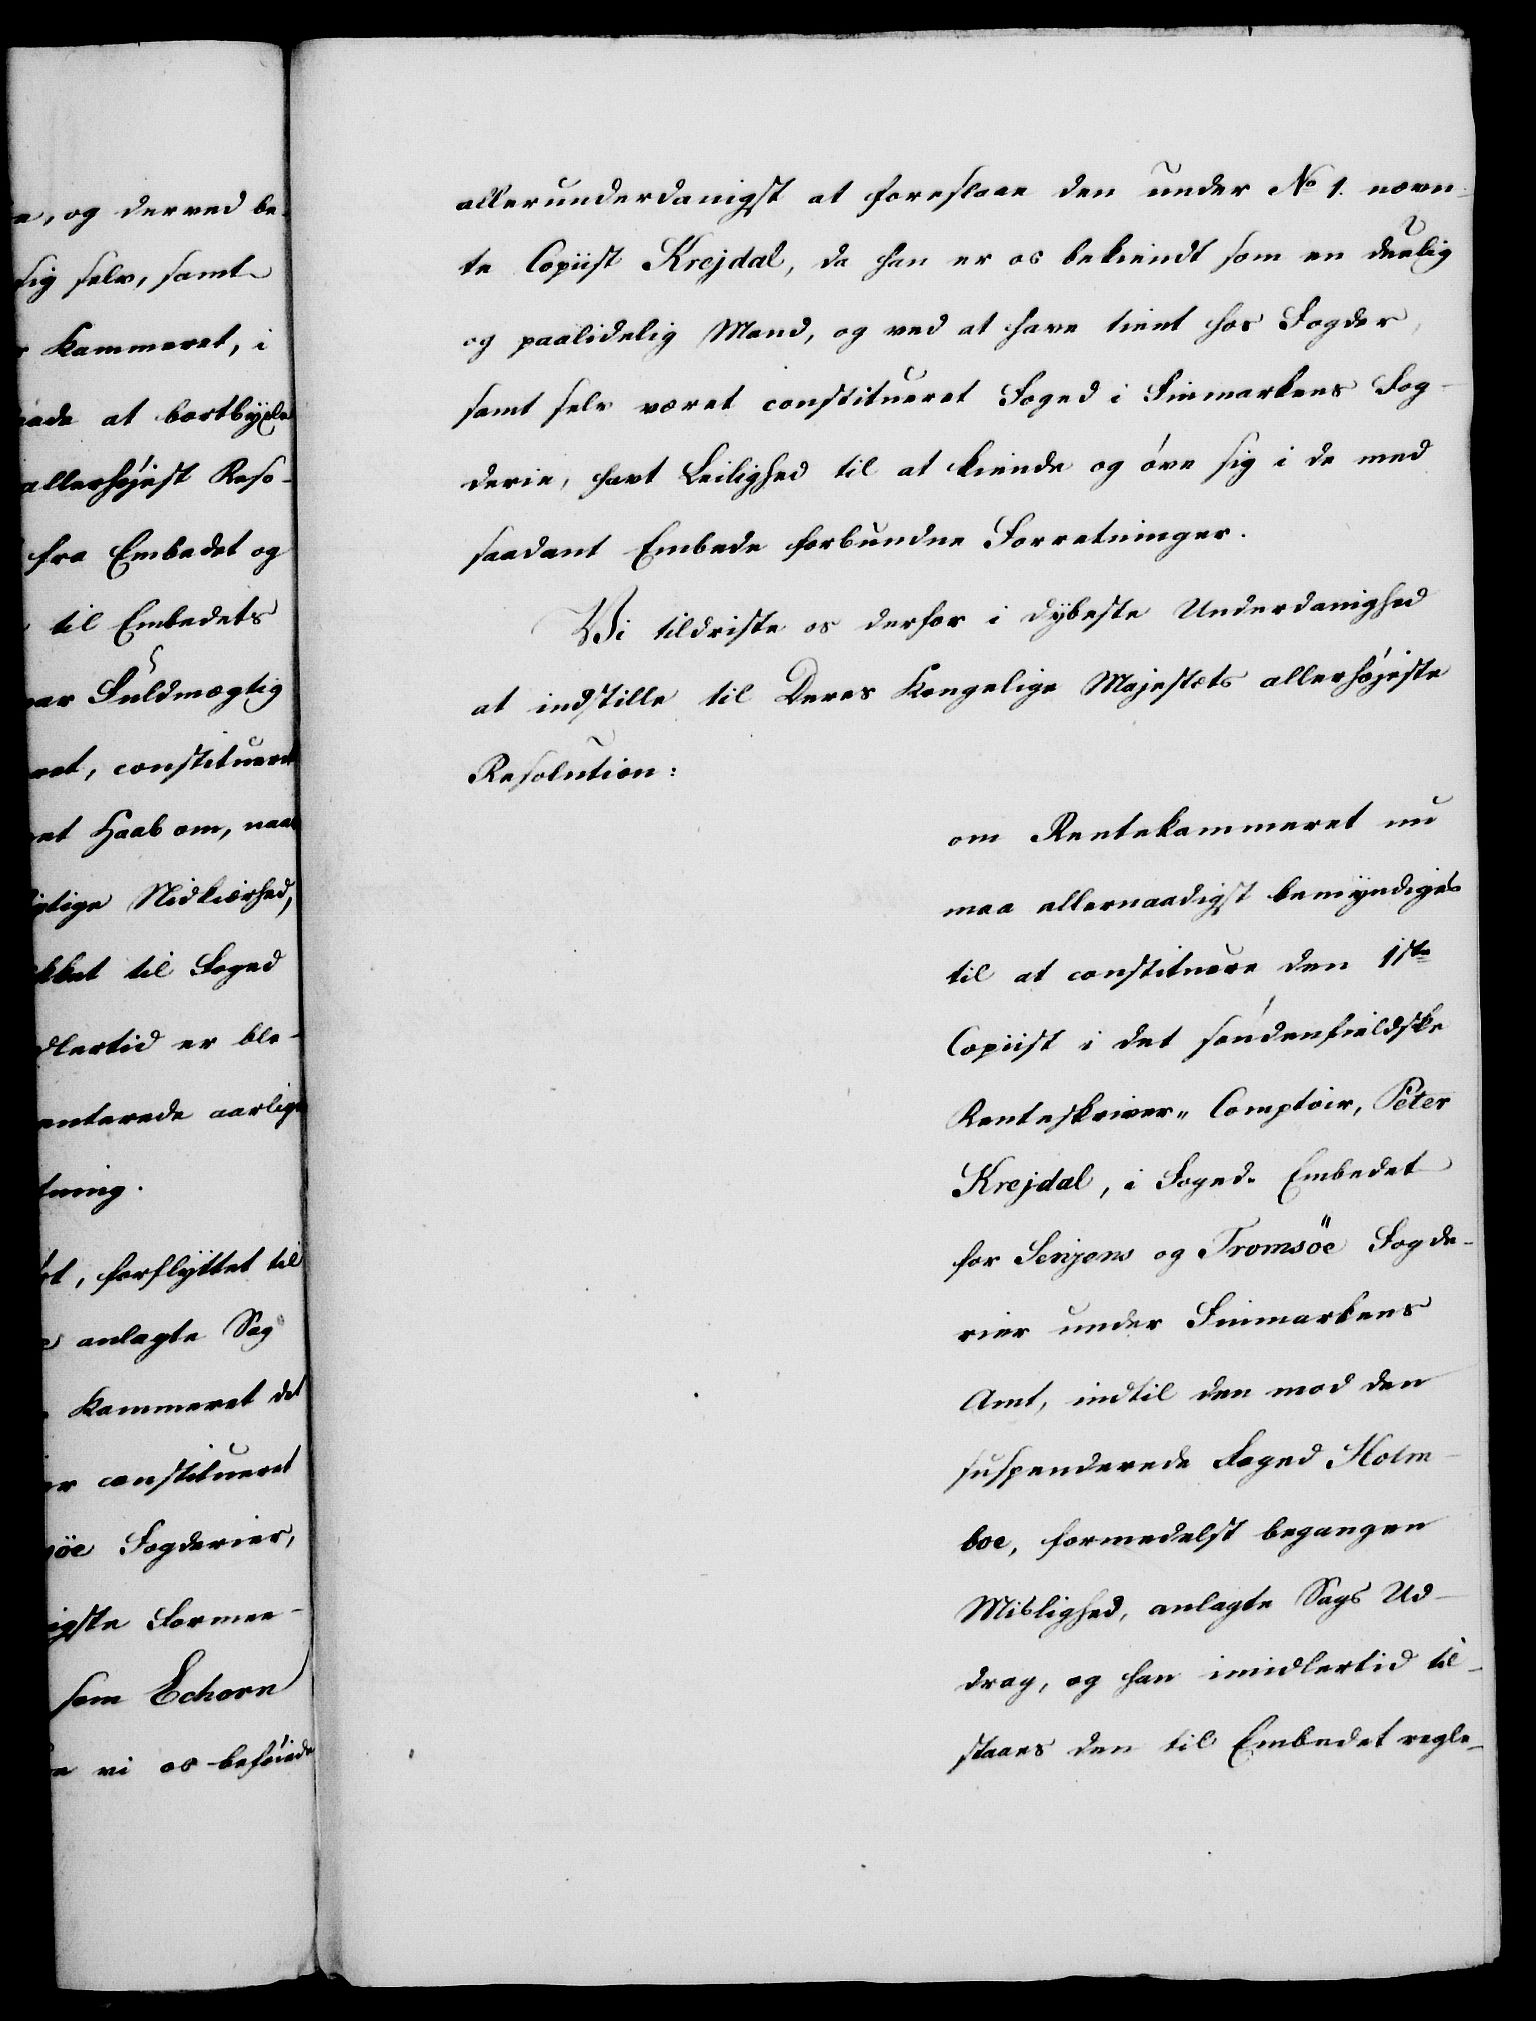 e, og derved be-
sig selv, samt
r Kammeret, i
at bortbyde
allerhøjest Reso-
fra Embedet og
til Embedets
var Fuldmægtig
ret, constitueret
et Haab om, naar
igtige Nidkierhed,
kket til Foged
dlertid er ble-
enterede aarlige
tning.
, forflyttet til
anlagte Sag
Kammeret det
er constitueret
söe Fogderier,
igste Formee-
som Echorn
vi os beföiede
allerunderdanigst at foreslaae den under No 1. nævn-
te Copiist Krejdal, da han er os bekiendt som en duelig
og paalidelig Mand, og ved at have tient hos Fogder,
samt selv været constitueret Foged i Finmarkens Fog-
derie, havt Leilighed til at kiende og öve sig i de med
saadant Embede forbundne Forretninger.
Vi tildriste os derfor i dybeste Underdanighed
at indstille til Deres Kongelige Majestæts allerhöjeste
Resolution:
om Rentekammeret nu
maa allernaadigst bemyndiges
til at constituere den 1ste
Copiist i det söndenfieldske
Renteskriver„ Comptoir, Peter
Krejdal, i Foged- Embedet
for Senjens og Tromsöe Fogde-
rier under Finmarkens
Amt, indtil den mod den
suspenderede Foged Holm-
boe, formedelst begangen
Mislighed, anlagte Sags Ud-
drag, og han imidlertid til-
staaes den til Embedet regle-